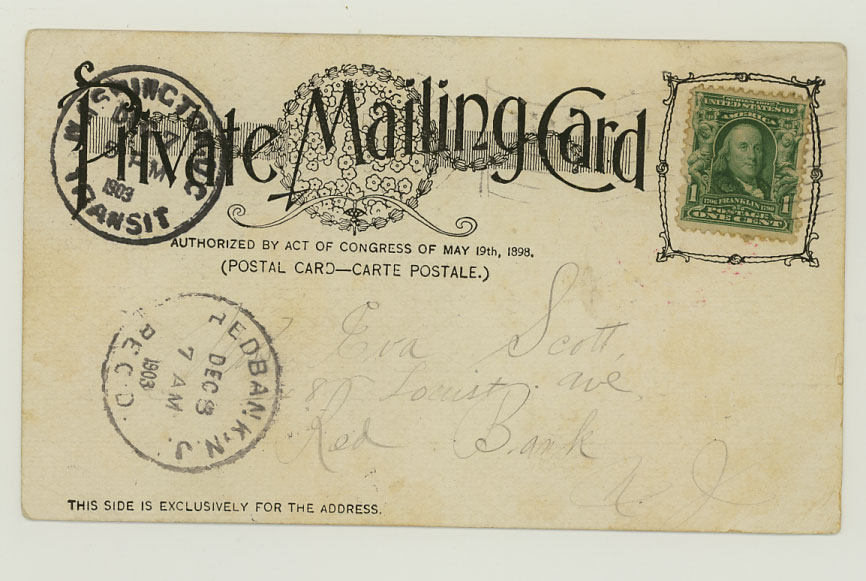 Private Mailing Card
AUTHORIZED BY ACT OF CONGRESS OF MAY 19th, 1898.
(POSTAL CARD—CARTE POSTALE.)
WASHINGTON, D.C.
DEC 7
M
1903
TRANSIT
UNITED STATES OF
AMERICA
1 1
1706 FRANKLIN 1790
POSTAGE
ONE CENT
RED BANK, N.J.
DEC 8
7 AM
1903
REC'D.
Eva Scott
Locust ave.
Red Bank
N J
THIS SIDE IS EXCLUSIVELY FOR THE ADDRESS.